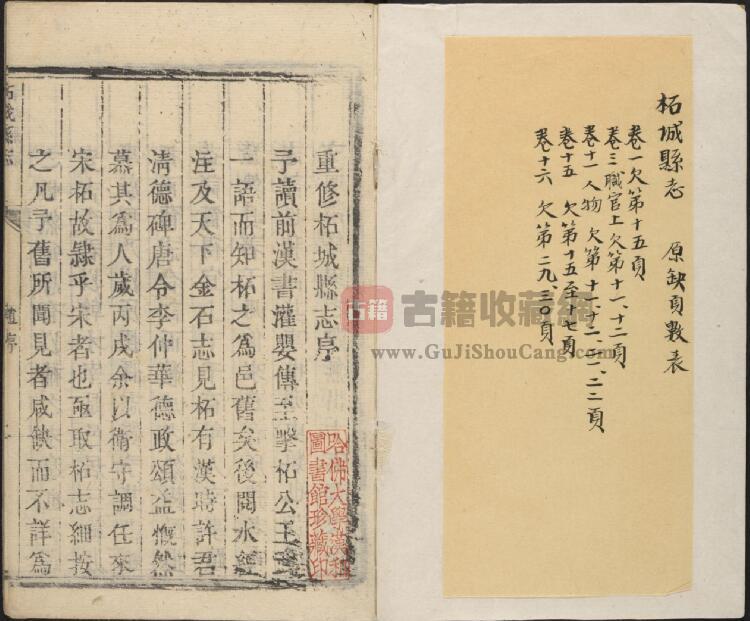 柘城縣志　原缺頁數表
卷一欠第十五頁
卷三職官上欠第十一、十二頁
卷十一人物　欠第十一、十二、二一、二二頁
卷十五　欠第十五至十七頁
卷十六　欠第二九、三〇頁
重修柘城縣志序
予讀前漢書灌嬰傳至擊柘公王武
一語而知柘之為邑舊矣後閱水經
注及天下金石志見柘有漢時許君
清德碑唐令李仲華德政頌益慨然
慕其為人歲丙戌余以衛守調任來
宋柘故隸乎宋者也亟取柘志細按
之凡予舊所聞見者咸缺而不詳為
柘城縣志
哈佛大學漢和
圖書館珍藏印
古籍
古籍收藏網
www.GuJiShouCang.com